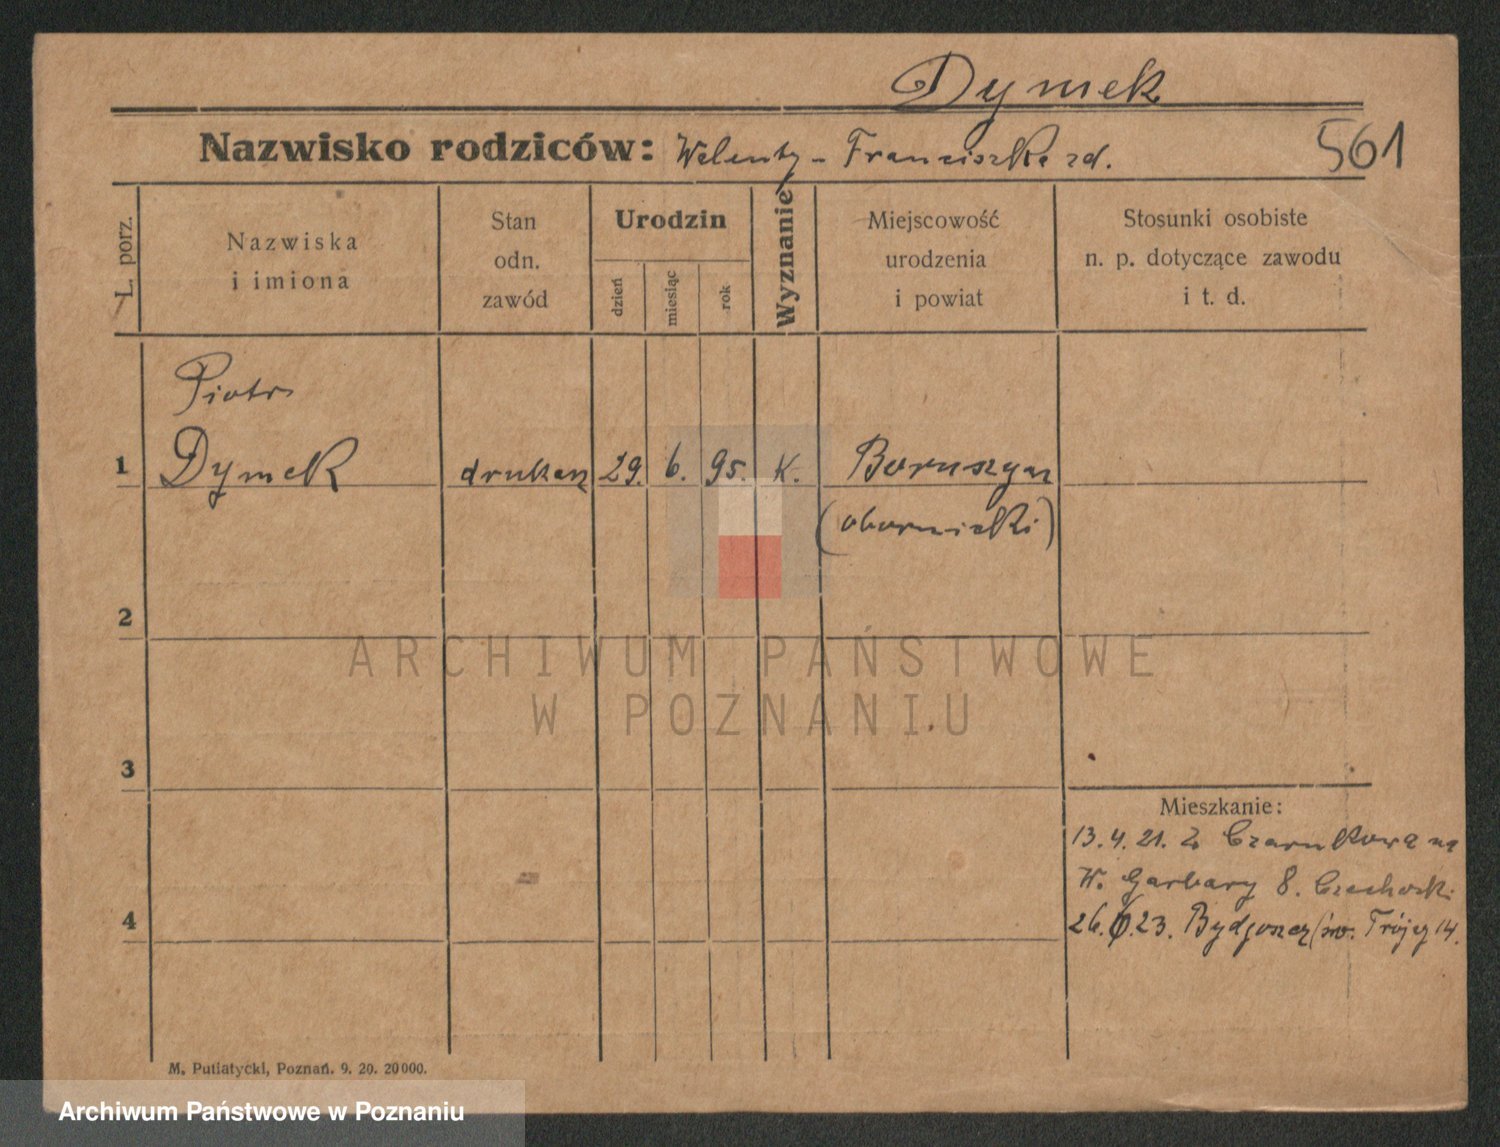 Dymek
Nazwisko rodziców: Walenty - Franciszka zd.
561
L. porz.
Nazwiska
i imiona
Stan
odn.
zawód
Urodzin
dzień
miesiąc
rok
Wyznanie
Miejscowość
urodzenia
i powiat
Stosunki osobiste
n. p. dotyczące zawodu
i t. d.
Piotr
1 Dymek drukarz 29. 6. 95. K. Boruszyn
(obornicki)
2
ARCHIWUM PAŃSTWOWE
W POZNANIU
3
Mieszkanie:
13.4.21. z Czarnkowa na
W. Garbary 8. Czechoski
4
26.6.23. Bydgoszcz św. Trójcy 14.
M. Putiatycki, Poznań. 9. 20. 20000.
Archiwum Państwowe w Poznaniu